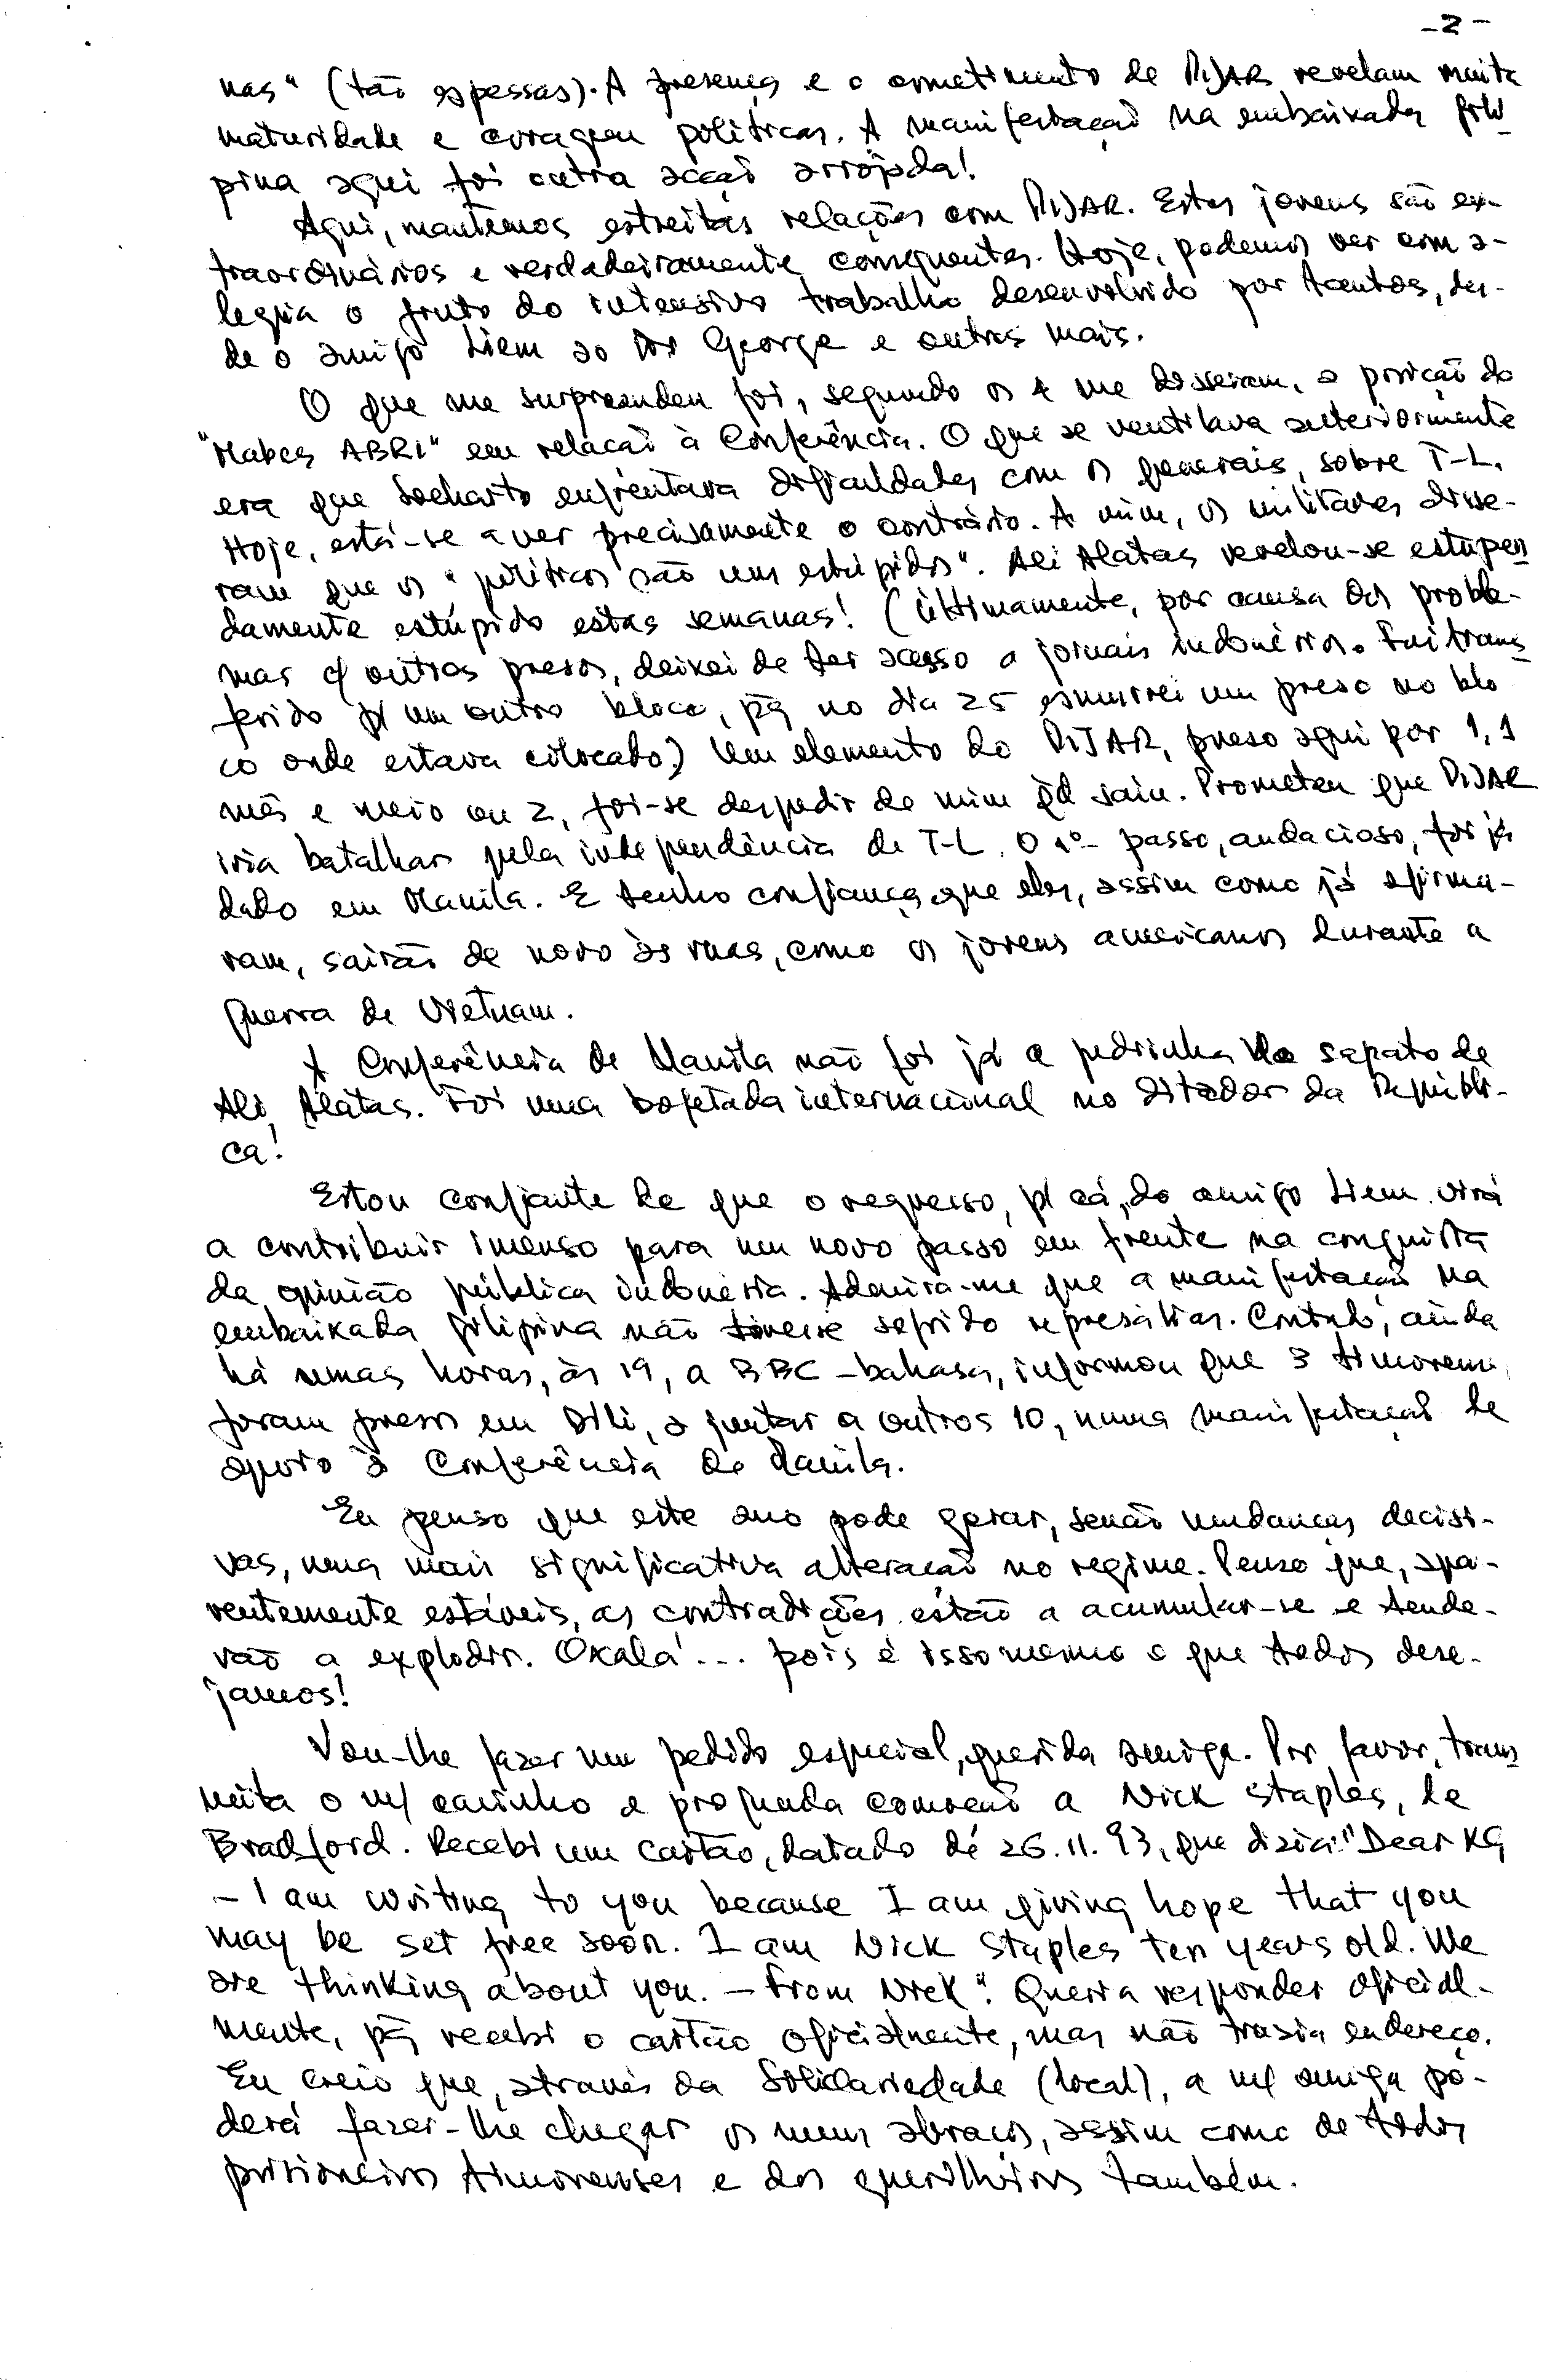 -2-
nas" (tão espessas). A presença e o cometimento de PIJAR revelam muita
maturidade e coragem políticas. A manifestação na embaixada fili
pina aqui foi outra acção arrojada!
Aqui, mantemos estreitas relações com PIJAR. Estes jovens são ex-
traordinários e verdadeiramente consequentes. Hoje, podemos ver com a-
legria o fruto do intensivo trabalho desenvolvido por tantos, des-
de o amigo Liem ao Dr George e outros mais.
O que me surpreendeu foi, segundo os 4 me disseram, a posição do
"Mabes ABRI" em relação à Conferência. O que se ventilava anteriormente
era que Soeharto enfrentava dificuldades com os generais, sobre T-L.
Hoje, está-se a ver precisamente o contrário. A mim, os militares disse-
ram que os "políticos são uns estúpidos". Ali Alatas revelou-se estupen
damente estúpido estas semanas! (Ultimamente, por causa dos proble-
mas c/ outros presos, deixei de ter acesso a jornais indonésios. Fui trans
ferido p/ um outro bloco, pq no dia 25 esmurrei um preso no blo
co onde estava colocado) Um elemento do PIJAR, preso aqui por 1, 1
mês e meio ou 2, foi-se despedir de mim qd saiu. Prometeu que PIJAR
iria batalhar pela independência de T-L. O 1º passo, audacioso, foi já
dado em Manila. E tenho confiança que eles, assim como já afirma-
ram, sairão de novo às ruas, como os jovens americanos durante a
guerra de Vietnam.
A Conferência de Manila não foi já a pedrinha no sapato de
Ali Alatas. Foi uma bofetada internacional no ditador da Repúbli-
ca!
Estou confiante de que o regresso, p/ cá, do amigo Liem virá
a contribuir imenso para um novo passo em frente na conquista
da opinião pública indonésia. Admira-me que a manifestação na
embaixada filipina não tivesse sofrido represálias. Contudo, ainda
há umas horas, às 19, a BBC-bahasa, informou que 3 timorens
foram presos em Dili, a juntar a outros 10, numa manifestação de
apoio à Conferência de Manila.
Eu penso que este ano pode gerar, senão mudanças decisi-
vas, uma mais significativa alteração no regime. Penso que, apa-
rentemente estáveis, as contradições estão a acumular-se e tende-
rão a explodir. Oxalá!... pois é isso mesmo o que todos dese-
jamos!
Vou-lhe fazer um pedido especial, querida amiga. Por favor, trans
mita o m/ carinho e profunda comoção a Nick Staples, de
Bradford. Recebi um cartão, datado de 26.11.93, que dizia: "Dear XG
- I am writing to you because I am giving hope that you
may be set free soon. I am Nick Staples ten years old. We
are thinking about you. - From Nick". Queria responder oficial-
mente, pq recebi o cartão oficialmente, mas não trazia endereço.
Eu creio que, através da Solidariedade (local), a m/ amiga po-
derá fazer-lhe chegar os meus abraços, assim como de todos
prisioneiros timorenses e dos guerilheiros também.